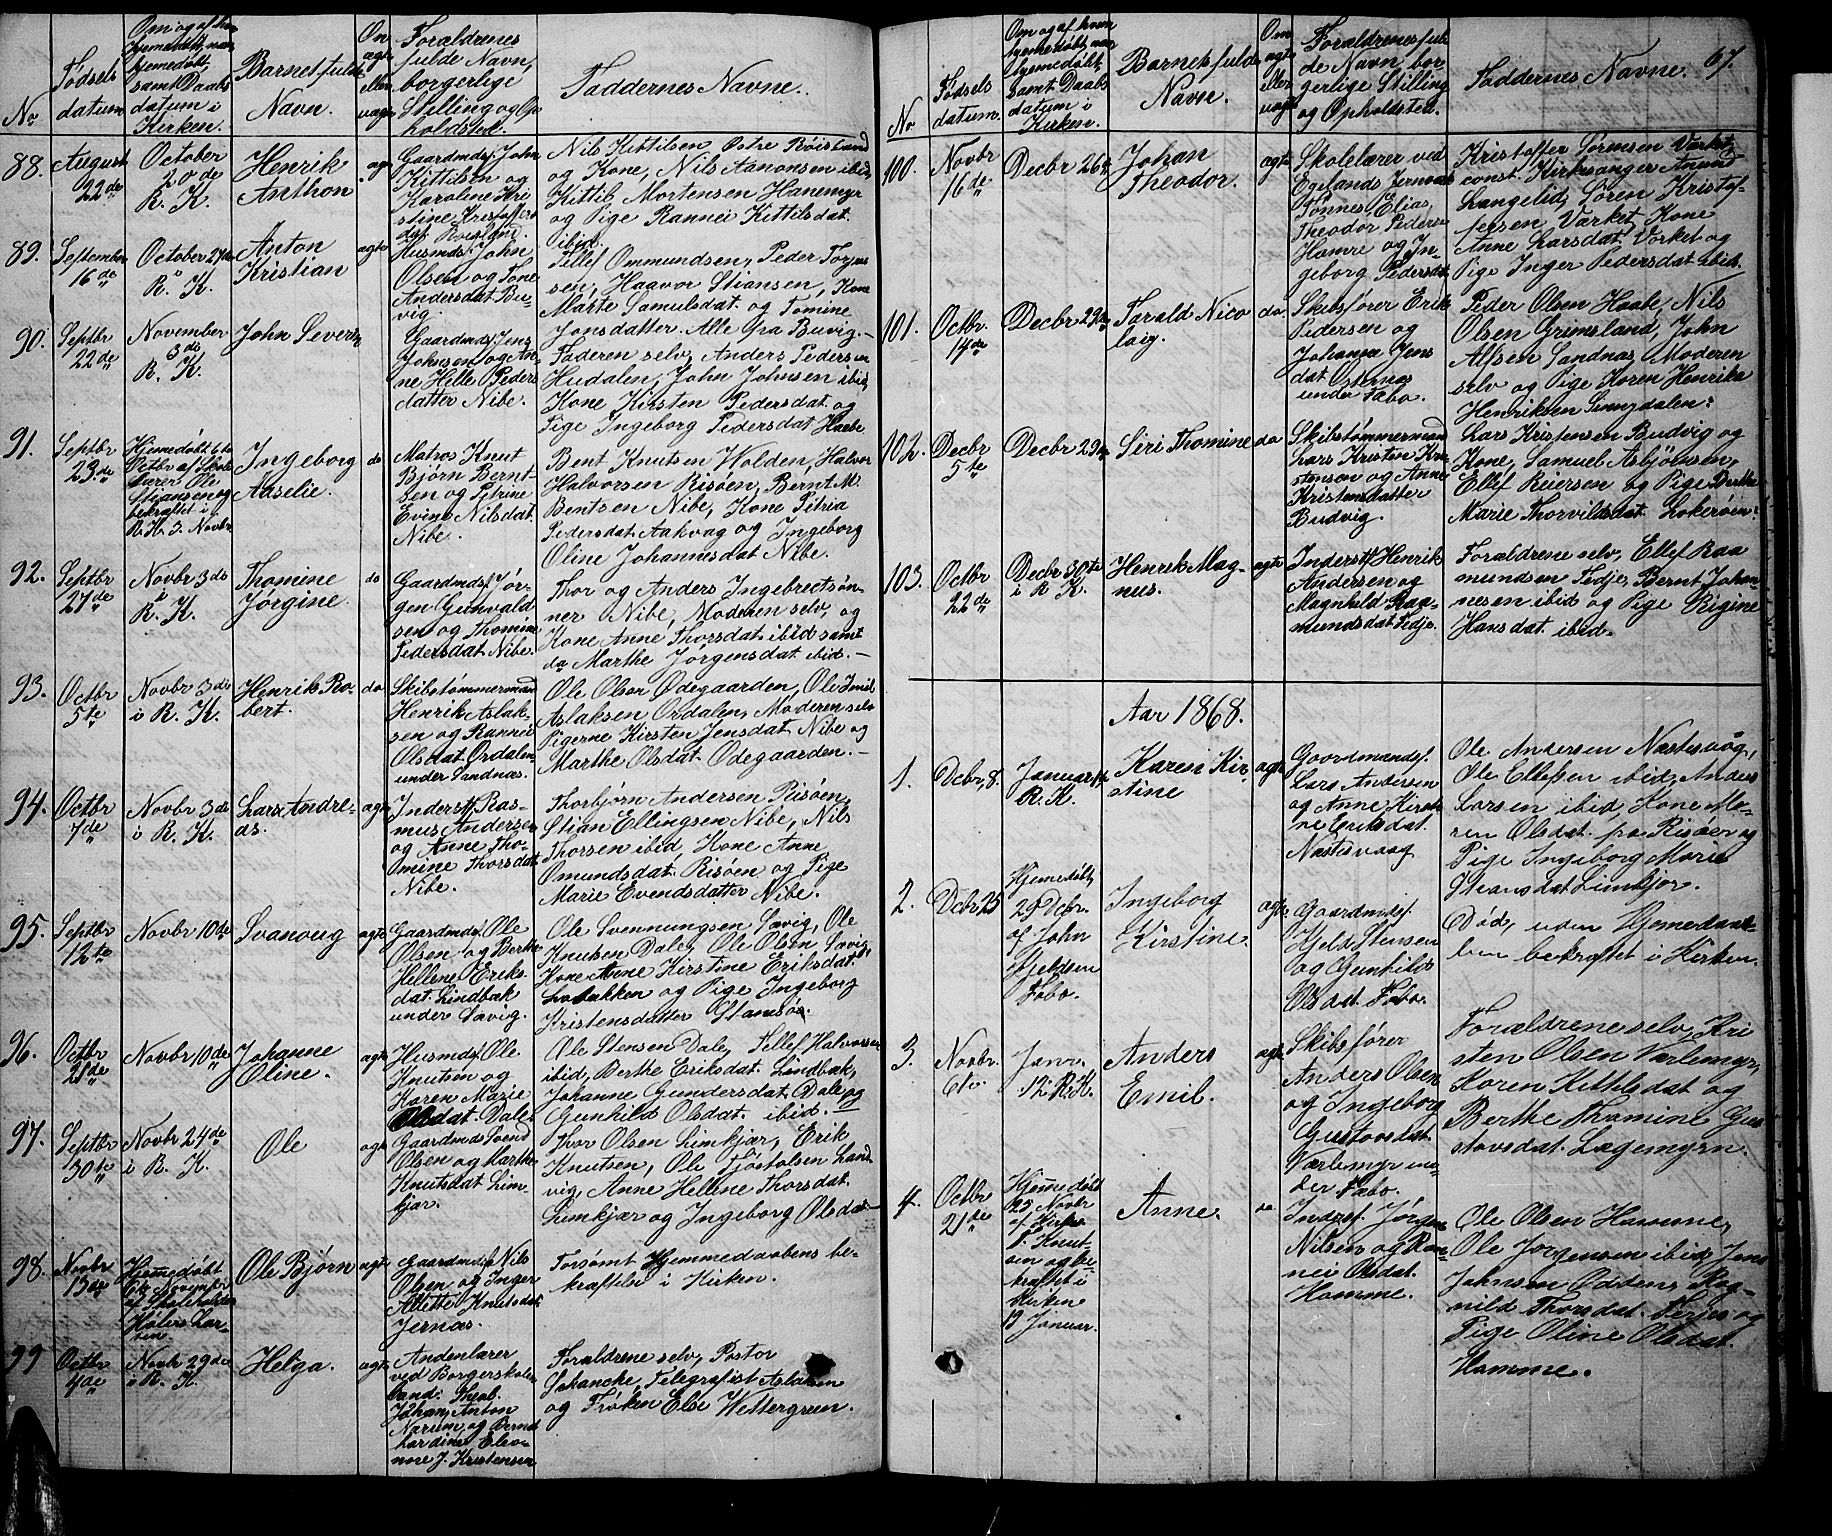 No
Fødsels
datum
Om og af hvem
hjemmedøbt, naar
hjemmedøbt,
samt Daabs
datum i
Kirken.
Barnets fulde
Navn.
Om
ægte
eller
uægte
Forældrenes
fulde Navn,
borgerlige
Stilling og Op
holdsted.
Faddernes Navne.
88.
August
22de
October
20de
R. K.
Henrik
Anthon
ægte
Gaardmds. John
Kittilsen og
Karoline Kri
stine Kristoffers
dat. Røisland.
Nils Kittilsen, Østre Røisland
og Kone, Nils Aanonsen ibid,
Kittil Mortensen Hanemyr
og Pige Rannei Kittilsdat.
ibid.
89.
September
16de
October 27de
R. K.
Anton
Kristian
ægte
Husmds. John
Olsen og Tone
Andersdat. Bu-
vig.
Tellef Ommundsen, Peder Torjus
sen, Haavor Stiansen, Kone
Marte Samulsdat. og Tomine
Jonsdatter. Alle fra Buvig.
90.
Septbr
22de
November
3de
R. K.
John Severin
Gaardmds. Jens
Johnsen og An-
ne Helle Peders
datter Nibe.
Faderen selv, Anders Pedersen
Hudalen, John Johnsen ibid,
Kone Kirsten Pedersdat. og
Pige Ingeborg Pedersdat. Haabe
91.
Septbr
23de
Hjemedøbt 6te
Octbr af Skole
lærer Ole
Stiansen og
bekræftet i
R. K. 3. Novbr
Ingeborg
Aaselie.
do
Matros Knut
Bjørn Bernt-
sen og Petrine
Evine Nilsdat.
Nibe.
Bent Knutsen Wolden, Halvor
Halvorsen Risøen, Bernt M.
Bentsen Nibe, Kone Petria
Pedersdat. Aakvag og Ingeborg
Oline Johannesdat Nibe.
92.
Septbr
27de
Novbr 3de
i
R. K.
Thomine
Jørgine.
do
Gaardmds. Jør-
gen Gunvald
sen og Thomine
Pedersdat. Nibe.
Thor og Anders Ingebrectsøn-
ner Nibe, Moderen selv, og
Kone Anne Thorsdat. ibid samt
do Marthe Jørgensdat. ibid.
93.
Octbr
5te
Novbr 3de
i R. K.
Henrik Ro-
bert.
do
Skibstømmermand
Henrik Aslak-
sen og Rannei
Olsdat. Ørdalen
under Sandnæs.
Ole Olsen Ødegaarden, Ole Emil
Aslaksen Ørdalen, Moderen selv
Pigerne Kirsten Jensdat. Nibe og
Marthe Olsdat. Ødegaarden.
94.
Octbr
7de
Novbr 3de
i R. K.
Lars Andre-
as.
ægte
Inderst Ras-
mus Andersen
og Anne Tho-
mine Thorsdat.
Nibe.
Thorbjørn Andersen Risøen,
Stian Ellingsen Nibe, Nils
Thorsen ibid Kone Anne
Omundsdat. Risøen og Pige
Marie Evendsdatter Nibe.
95.
Septbr
12te
Novbr 10de
Svanoug
ægte
Gaardmds. Ole
Olsen og Berthe
Hellene Eriks
dat. Lindbæk
under Savig.
Ole Svennungsen Savig, Ole
Knutsen Dale, Ole Olsen Savig,
Kone Anne Kirstine Eriksdat.
Lobakken og Pige Ingeborg
Kristensdatter Stamsøe.
96.
Octbr
21de
Novbr 10de
Johanne
Oline.
ægte
Husmds. Ole
Knutsen og
Karen Marie
Olsdat. Dale
Ole Stensen Dale, Tellef Halvorsen
ibid, Berthe Eriksdat. Lindbæk,
Johanne Gundersdat. Dale og
Gunhild Olsdat. ibid.
97.
Septbr
30te
Novbr 24de
i R. K.
Ole
ægte
Gaardmds Svend
Olsen og Marthe
Knutsdat. Lim-
kjær.
Thor Olsen Limkjær, Erik
Knutsen, Ole Tjøstolsen Land-
vig, Anne Hellene Thorsdat.
Limkjær og Ingeborg Olsdat.
98.
Novbr
13de
Hjemedøbt
November
af Skoleholder
Lar-
sen
Ole Bjørn
ægte
Gaardmds. Nils
Olsen og Inger
Alette Knutsdat.
Jernæs.
Forsømt Hjemmedaabens be-
kræftelse i Kirken.
99
Octbr
4de
Novbr 29de
i R. K.
Helga.
ægte
Andenlærer
ved Borgerskolen
Theol.
Johan Anton
Narum og Bernd
hardine Eleo-
nore J. Kristensen
Forældrene selv, Pastor
Schancke, Telegrafist Aslaksen
og Frøken Else Wettergreen.
67.
No
Fødsels
datum.
Om og af hvem
hjemmedøbt, naar
hjemmedøbt,
samt Daabs
datum i
Kirken.
Barnets fulde
Navn.
Om
ægte
eller
uægte
Forældrenes ful
de Navn, bor
gerlige Stilling
og Opholdsted.
Faddernes Navne.
100.
Novbr
16de
Decbr 26de
Johan
Theodor.
ægte
Skolelærer ved
Egelands Jernværk
Tønnes Elias
Theodor Peders
Hamre og In-
geborg Pedersdat.
Kristoffer Sørensen Værket,
const. Kirkesanger Amund
Langelid, Søren Kristof-
fersen Værket, Kone
Anne Larsdat. Værket og
Pige Inger Pedersdat ibid.
101.
Octbr.
14de
Decbr 29de
Tarald Nico
laig.
do
Skibsfører Erik
Pedersen og
Johanne Jens
dat Østernæs
under Fæbo.
Peder Olsen Haabe, Nils
Olsen Grimsland, John
Alfsen Sandnæs, Moderen
selv og Pige Karen Henrikke
Henriksen Sunnjdalen.
102.
Decbr
5te
Decbr 29de
Siri Thomine
do
Skibstømmermand
Lars Kristen Kri
stensen og Anne
Kristensdatter
Budvig.
Lars Kristensen Budvig og
Kone, Samuel Asbjørnsen,
Ellef Reiersen og Pige Dorthe
Marie Thorvildsdat. Lokerøen.
103.
Octbr
22de
Decbr 30te
i R K.
Henrik Mag-
nus.
ægte
Inderst Henrik
Andersen og
Magnhild Raa-
mundsdat Fedje.
Forældrene selv, Ellef Raa
mundsen Fedje, Bernt Johan
nesen ibid og Pige Rigine
Hansdat. ibid.
Aar 1868.
1.
Dcbr, 8.
Januar
R. K.
Karen Kir
stine
ægte
Gaardmands.
Lars Andersen
og Anne Kirsti
ne Eriksdat.
Næstesvaag
Ole Andersen Næstesvåg,
Ole Ellefsen ibid, Anders
Larsen ibid, Kone Ma-
ren Olsdat. fra Risøer og
Pige Ingeborg Marie
Stiansdat Limkjær.
2.
Dcbr 25
Hjemedøbt,
29 Dcbr.
af John
Hjeldsen
Fæbo.
Ingeborg
Kirstine.
ægte
Gaardmds.
Hjeld Stensen
og Gunhild
Olsdat. Fæbo.
Død, uden Hjemedaa-
ben bekræftet i Kirken.
3.
Novbr.
Janr.
12 R. K.
Anders
Emil.
ægte
Skibsfører
Anders Olsen
og Ingeborg
Gustavsdat.
Værlemyr un-
der Fæbo.
Forældrene selv, Kri
sten Olsen Værlemyr,
Karen Kittilsdat og
Berthe Thamine Gu-
stavsdat. Lægemyrn.
4.
Octbr
21de
Hjemedøbt
25 Novbr
af Kirkes.
Knut
sen og be-
kræftet i
Kirken
19 Januar.
Anne.
do
Inderst. Jørgen
Nilsen og Ran-
nei Olsdat.
Hamme.
Ole Olsen Hamme,
Ole Jørgensen ibid, Jens
Johnsen Odden, Rag-
nild Thorsdat. Ferjes og
Pige Oline Olsdat.
Hamme.